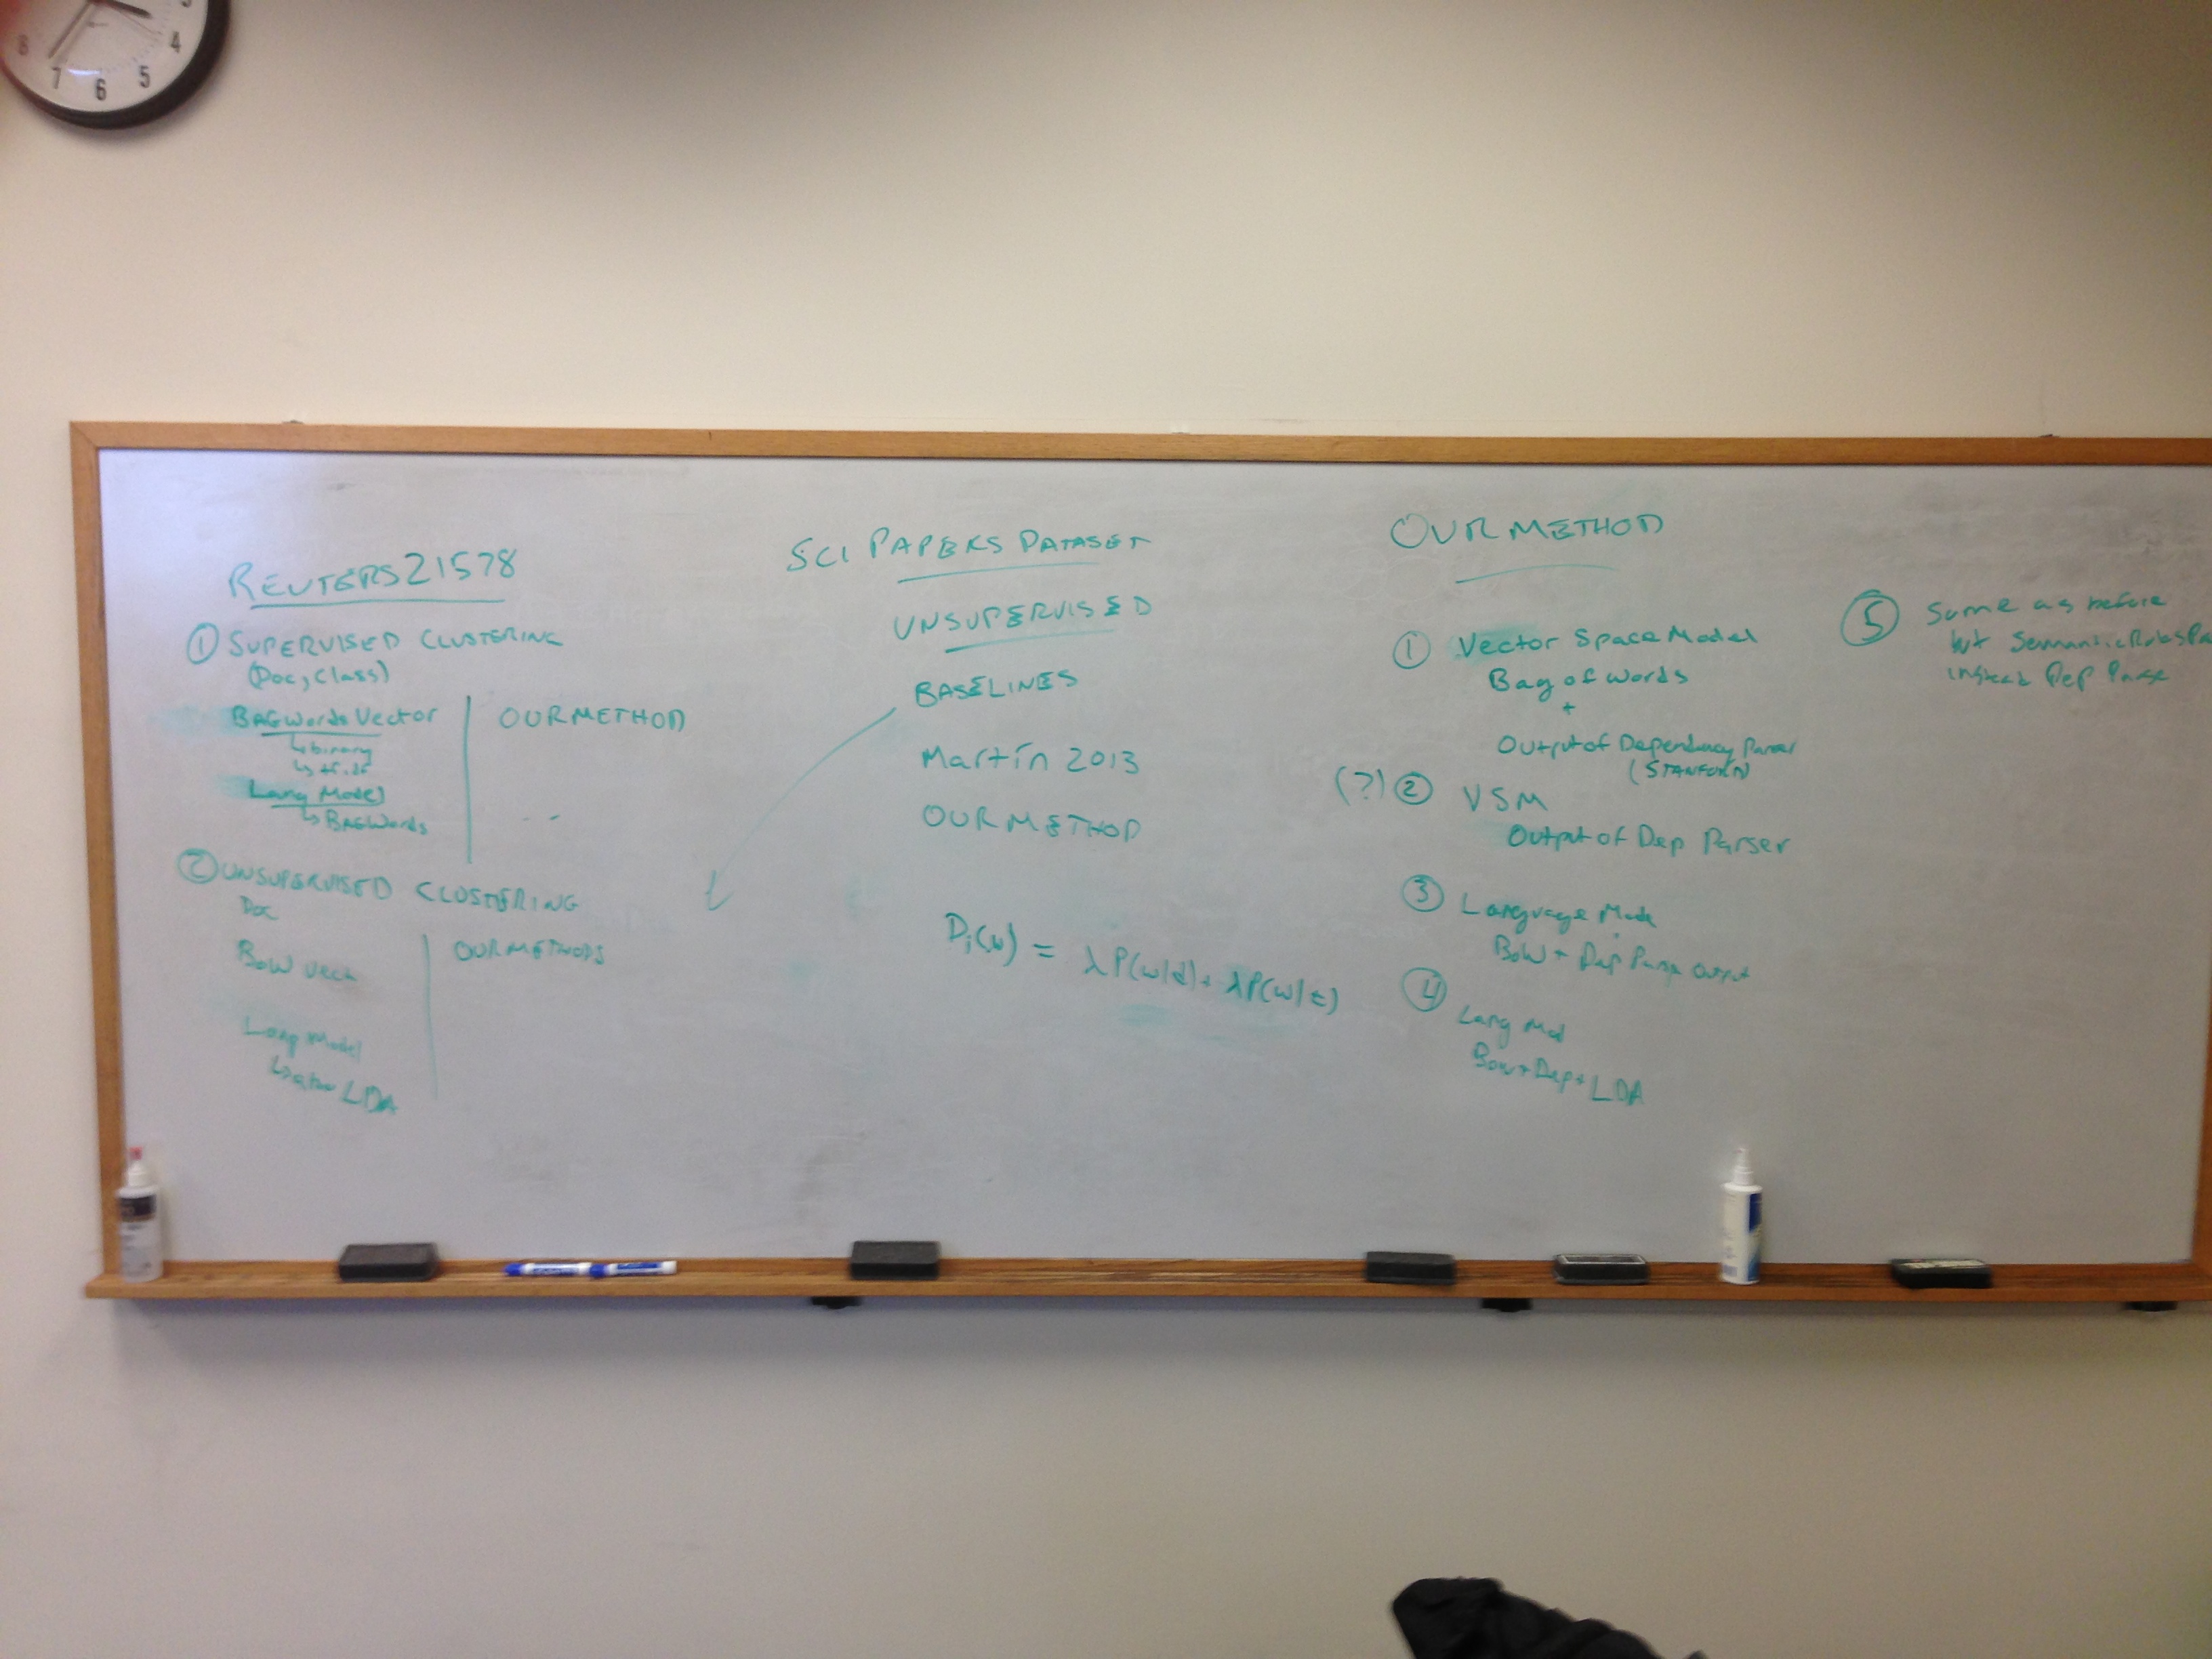 4
8
7
6
5
REUTERS21578
① SUPERVISED CLUSTERING
(Doc, Class)
BAGWords Vector
↳ binary
↳ tf.idf
Lang Model
↳ BAGWords
OURMETHOD
② UNSUPERVISED CLUSTERING
Doc
BoW Vect
Lang Model
LDA
OUR METHODS
SCI PAPERS DATASET
UNSUPERVISED
BASELINES
Martín 2013
OUR METHOD
Di(w) = λP(w|d) + λP(w|t)
OUR METHOD
① Vector Space Model
Bag of Words
+
Output of Dependency Parser
(STANFORD)
(?) ② VSM
Output of Dep Parser
③ Language Mode
BoW + Dep Parse Output
④ Lang Mod
Bow+Dep+LDA
⑤ Same as before
but SemanticRulesPa
instead Dep Parse